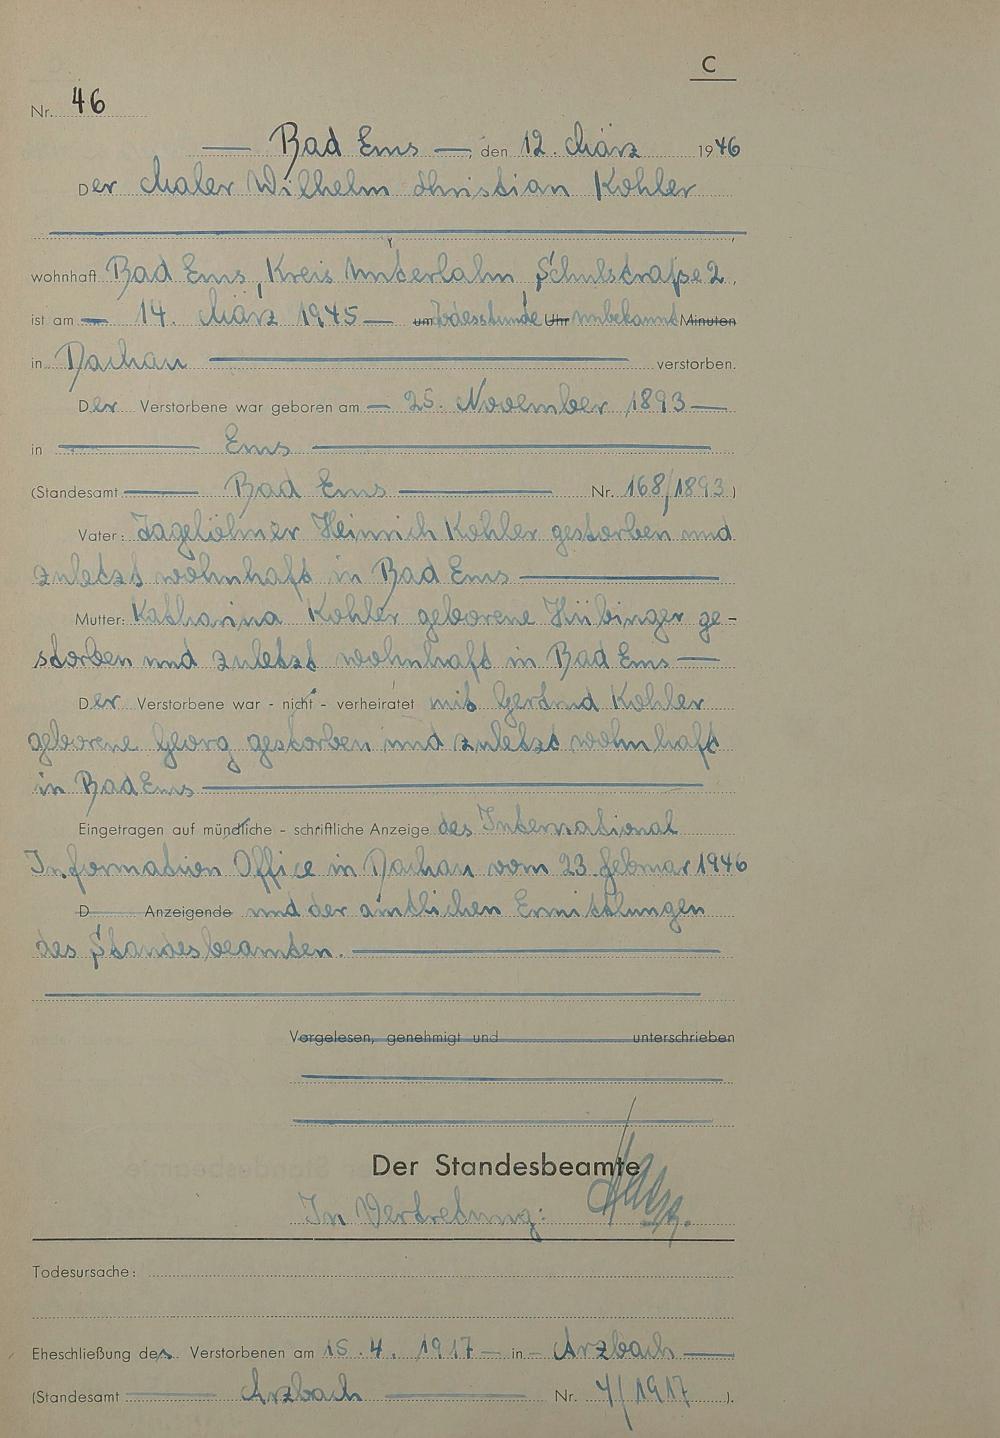 C
Nr. 46
Bad Ems, den 12. März 1946
Der Maler Wilhelm Christian Kohler
wohnhaft Bad Ems, Kreis Unterlahn Schulstraße 2,
ist am 14. März 1945 um Todesstunde Uhr unbekannt Minuten
in Dachau verstorben.
Der Verstorbene war geboren am 25. November 1893
in Ems
(Standesamt Bad Ems Nr. 168/1893)
Vater: Tagelöhner Heinrich Kohler gestorben und
zuletzt wohnhaft in Bad Ems
Mutter: Katharina Kohler geborene Hübinger ge-
storben und zuletzt wohnhaft in Bad Ems
Der Verstorbene war - nicht - verheiratet mit Gertrud Kohler
geborene Georg gestorben und zuletzt wohnhaft
in Bad Ems
Eingetragen auf mündliche - schriftliche Anzeige des International
Information Office in Dachau vom 23. Februar 1946
D Anzeigende und der amtlichen Ermittlungen
des Standesbeamten.
Vorgelesen, genehmigt und unterschrieben
Der Standesbeamte
In Vertretung:
Todesursache:
Eheschließung des Verstorbenen am 15.4.1917 in Arzbach
(Standesamt Arzbach Nr. 4/1917).